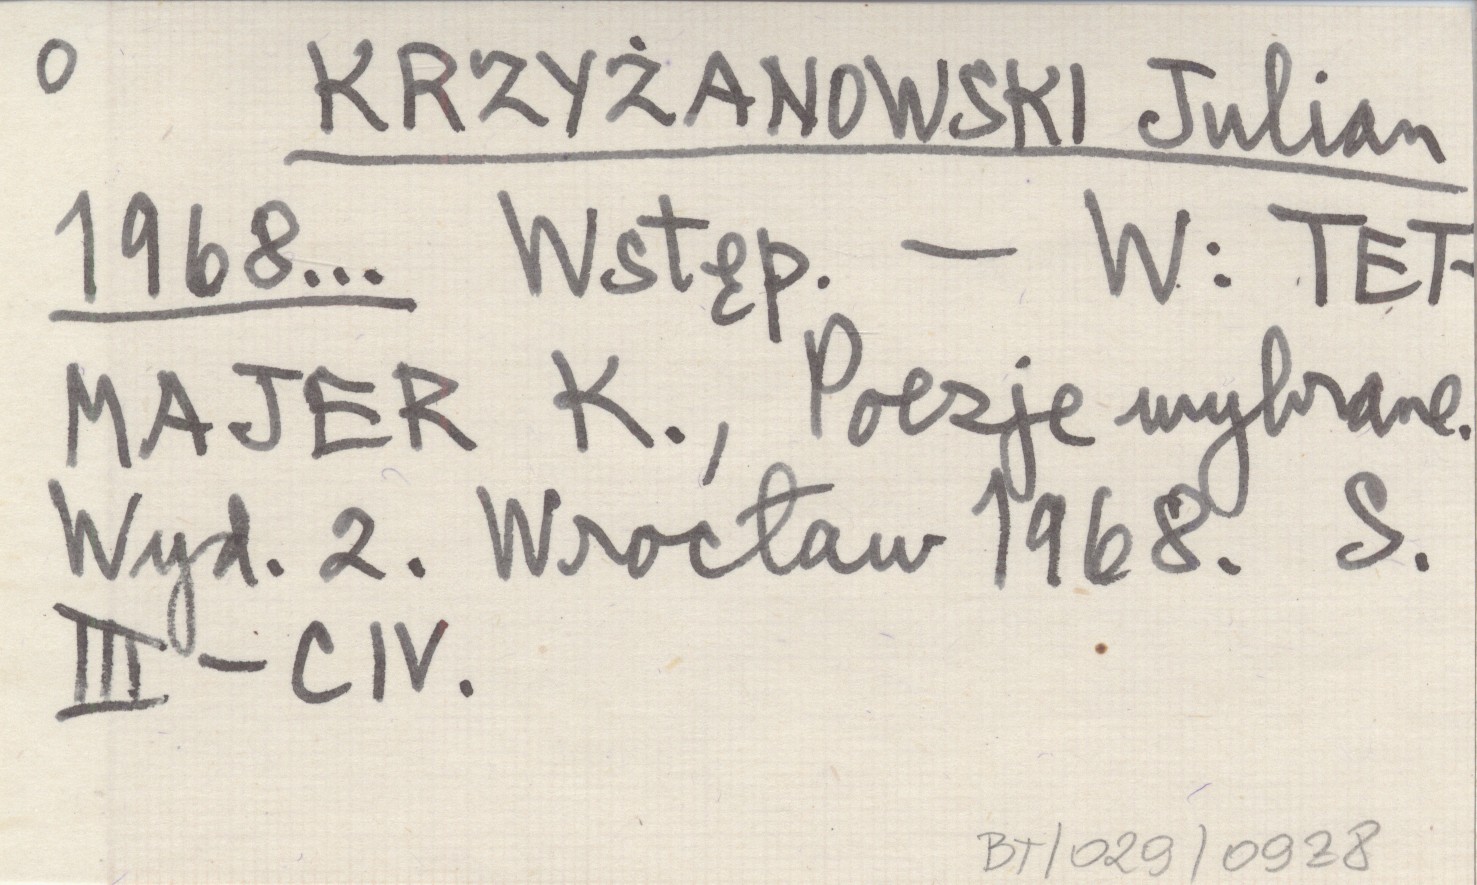 o KRZYŻANOWSKI Julian
1968... Wstęp. — W: TET-
MAJER K., Poezje wybrane.
Wyd. 2. Wrocław 1968. S.
III – CIV.
BT/029/0938